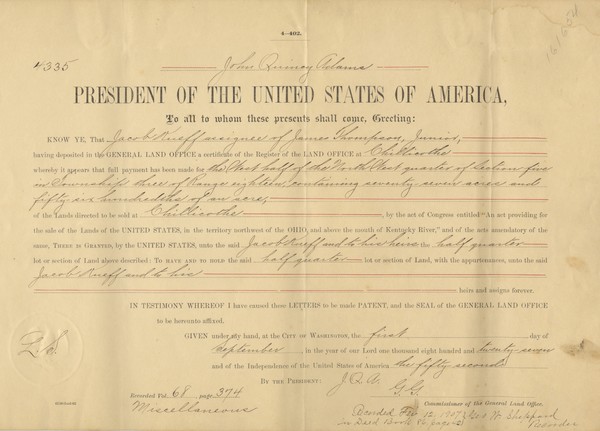 4—402.
161654
4335
John Quincy Adams
PRESIDENT OF THE UNITED STATES OF AMERICA,
To all to whom these presents shall come, Greeting:
KNOW YE, That Jacob Kueff assignee of James Thompson, Junior,
having deposited in the GENERAL LAND OFFICE a certificate of the Register of the LAND OFFICE at Chillicothe
whereby it appears that full payment has been made for the West half of the North West quarter of Section five
in Township three of Range eighteen, containing seventy seven acres and
fifty six hundredths of an acre,
of the Lands directed to be sold at Chillicothe, by the act of Congress entitled "An act providing for
the sale of the Lands of the UNITED STATES, in the territory northwest of the OHIO, and above the mouth of Kentucky River," and of the acts amendatory of the
same, THERE IS GRANTED, by the UNITED STATES, unto the said Jacob Kueff and to his heirs the half quarter
lot or section of Land above described: TO HAVE AND TO HOLD the said half quarter lot or section of Land, with the appurtenances, unto the said
Jacob Kueff and to his
heirs and assigns forever.
IN TESTIMONY WHEREOF I have caused these LETTERS to be made PATENT, and the SEAL of the GENERAL LAND OFFICE
to be hereunto affixed.
L.S.
GIVEN under my hand, at the CITY OF WASHINGTON, the first day of
September in the year of our Lord one thousand eight hundred and twenty seven
and of the Independence of the United States of America the fifty second.
BY THE PRESIDENT: J. Q. A.
G. G.
Commissioner of the General Land Office.
Recorded Vol. 68 page 374
Miscellaneous
Recorded Feb 12, 1907
in Deed Book 86 page
Geo W. Sheppard
Recorder